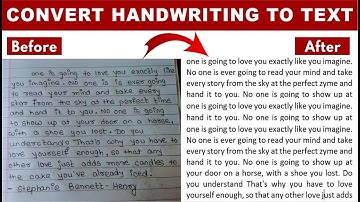 CONVERT HANDWRITING TO TEXT
Before
After
one is going to love you exactly like
you imagine. No one is is ever going
to read your mind and take every
story from the sky at the perfect time
and hand it to you. No one is going
to show up at your door on a horse,
with a shoe you lost. Do you
understand? That's why you have to
love yourself enough, so that any
other love just adds more candles to
the cake you've already iced.
- Stephanie Bennett-Henry
one is going to love you exactly like you imagine.
No one is ever going to read your mind and take
every story from the sky at the perfect zyme and
hand it to you. No one is going to show up at
one is going to love you exactly like you imagine.
No one is ever going to read your mind and take
every story from the sky at the perfect zyme and
hand it to you. No one is going to show up at
your door on a horse, with a shoe you lost. Do you
understand That's why you have to love
yourself enough, so that any other love just adds